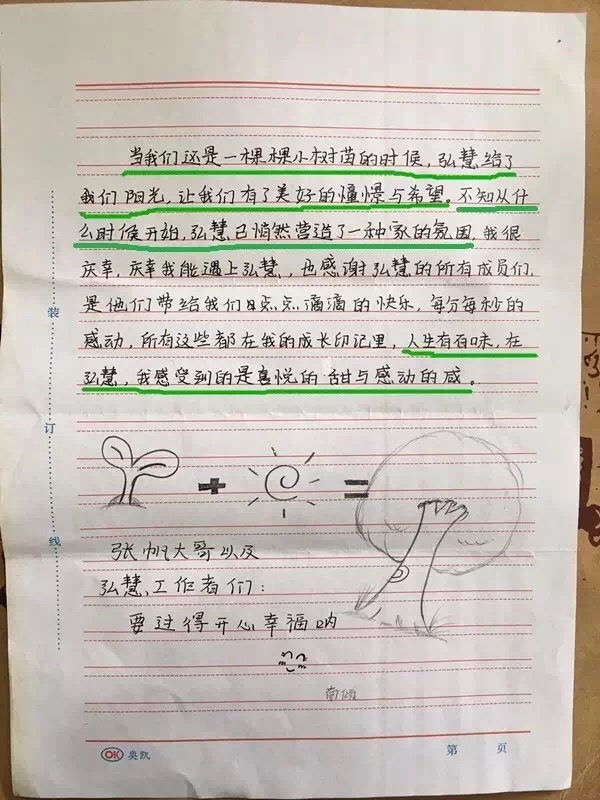 当我们还是一棵棵小树苗的时候，弘慧给了
我们阳光，让我们有了美好的憧憬与希望。不知从什
么时候开始，弘慧已悄然营造了一种家的氛围。我很
庆幸，庆幸我能遇上弘慧，也感谢弘慧的所有成员们，
是他们带给我们点点滴滴的快乐，每分每秒的
感动，所有这些都在我的成长印记里，人生有百味，在
弘慧，我感受到的是喜悦的甜与感动的咸。
+ =
张帆大哥以及
弘慧工作者们：
要过得开心幸福呐
南
装
订
线
OK 奥凯
第 页